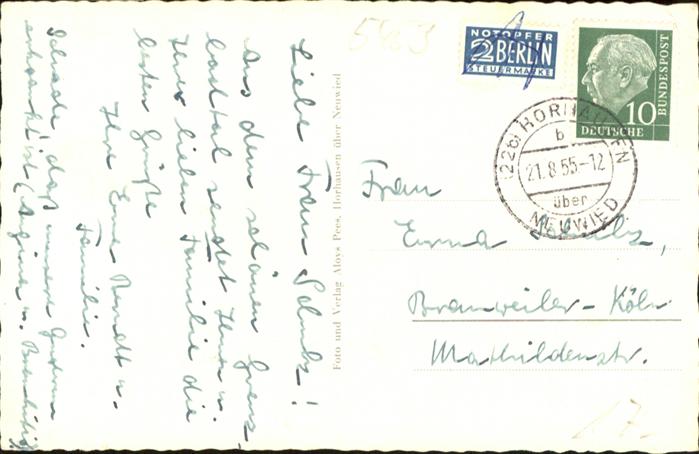 Liebe Frau Schulz!
Aus dem schönen Grenz-
bachtal sendet Ihnen u.
Ihrer lieben Familie die
besten Grüße
Ihre Erna u.
Familie.
Schade! daß unsere
erkrankt ist (Angina u. Bronchitis)
Foto und Verlag Aloys Pees, Horhausen über Neuwied
5953
NOTOPFER
2 BERLIN
STEUERMARKE
10
DEUTSCHE
BUNDESPOST
(22b) HORHAUSEN
b
21.8.55-12
über
NEUWIED
Frau
Erna Schulz,
Brauweiler-Köln
Mathildenstr.
17.